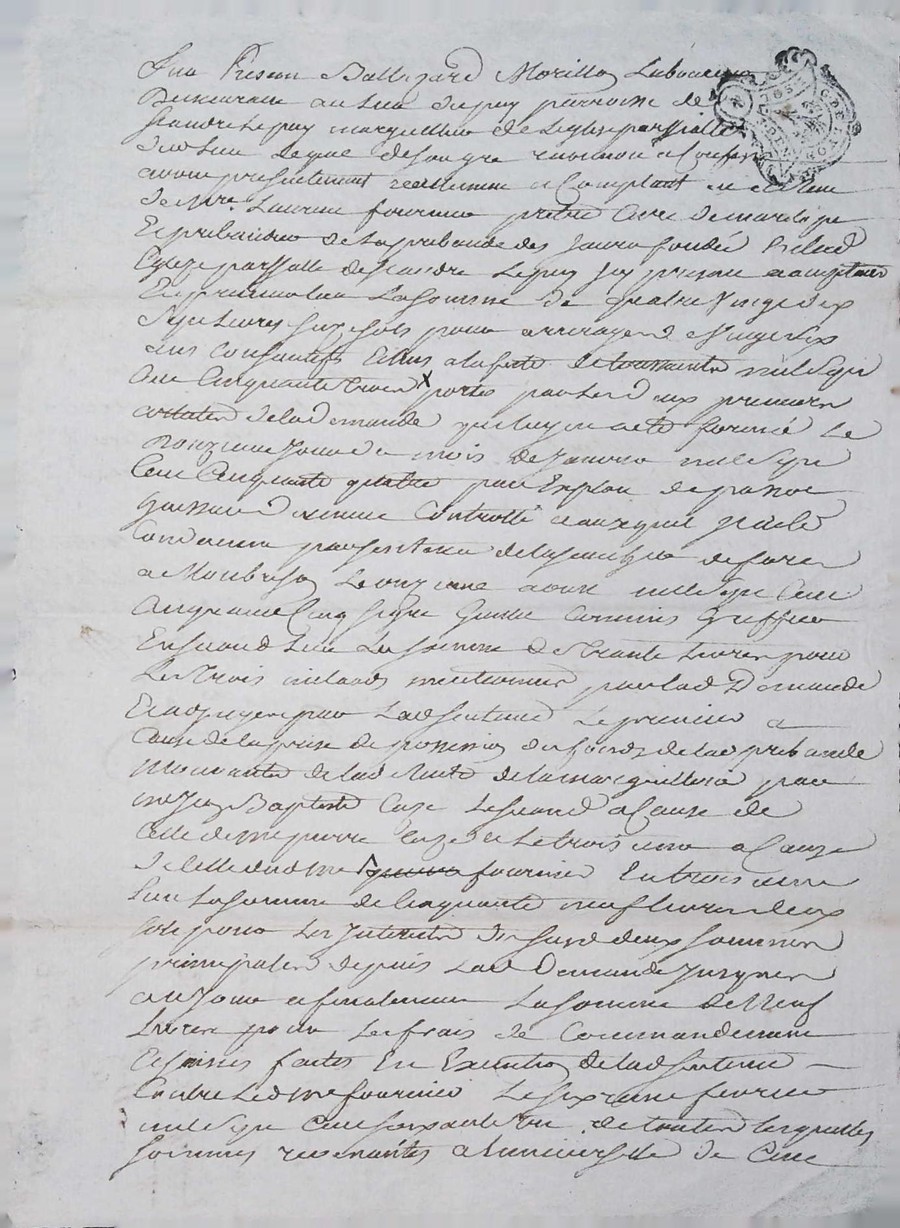 Fut Présent Baltazard Morillon Laboureur
Demeurant au lieu du puy parroisse de
St andré Le puy marguillier de L'eglise parssialle
dud lieu Lequel de son gré reconnoit et Confesse
avoir presentement reellement et Comptant eu et Recu
de Mre Laurent fournier pretre Curé de
Et prebandier de la prebande des fondée En lad
Eglize parssialle de St andré Le puy icy present acceptant
En premier lieu La somme de quatre Vingt dix
Sept livres six sols pour arrerages de Vingt Six
ans Consecutifs Echus a la fete de toussaints mil Sept
Cent Cinquante trois x portés par les deux premiers
de la demande qui luy en a eté formée Le
onzieme Jour du mois de Janvier mil Sept
Cent Cinquante quatre par Exploit de
Controllé et auxquels il a eté
Condamné par sentence de la senechaussée de forez
a Montbrison Le onzieme aout mil Sept Cent
Cinquante Cinq signé Commis Greffier
En second lieu La somme de Trante Livres pour
Les Trois milaods mentionnés par lad Demande
Et adjugés par Lad sentence Le premier a
Cause de la prise de possession des fonds de lad prebande
Mouvante de la directe de la marguillerie par
me Jean Baptiste Caze Le second a Cause de
Celle de me pierre Caze et Le troisieme a Cause
de Celle dud me fournier En troisieme
Lieu La somme de Cinquante neuf livres deux
sols pour Les Interets desdites deux sommes
principales depuis Lad Demande Jusques
a ce Jour et finalement La somme de Neuf
Livres pour Les frais de Commandement
Et saisies faites En Execution de lad sentence
Contre Led me fournier Le sixieme fevrier
mil Sept Cent soixante de toutes lesquelles
sommes revenantes a l'universelle de Cent